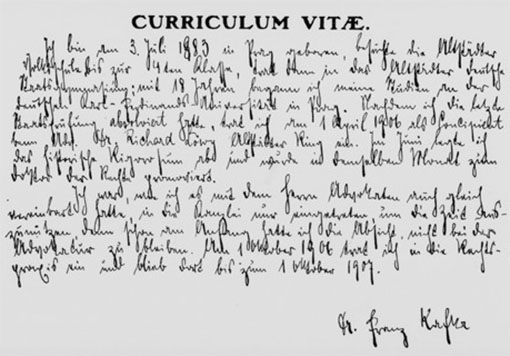 CURRICULUM VITÆ.
Ich bin am 3. Juli 1883 in Prag geboren, besuchte die Altstädter
Volksschule bis zur 4ten Klasse, trat dann in das Altstädter deutsche
Staatsgymnasium; mit 18 Jahren begann ich meine Studien an der
deutschen Karl-Ferdinands Universität in Prag. Nachdem ich die letzte
Staatsprüfung absolviert hatte, trat ich am 1 April 1906 als Concipient
beim Adv. Dr. Richard Löwy Altstädter Ring ein. Im Juni legte ich
das historische Rigorosum ab und wurde in demselben Monat zum
Doktor der Rechte promoviert.
Ich war, wie ich es mit dem Herrn Advokaten auch gleich
vereinbart hatte, in die Kanzlei nur eingetreten, um die Zeit aus-
zunützen denn schon am Anfang hatte ich die Absicht, nicht bei der
Advokatur zu bleiben. Am 1 Oktober 1906 trat ich in die Rechts-
praxis ein und blieb dort bis zum 1 Oktober 1907.
Dr. Franz Kafka